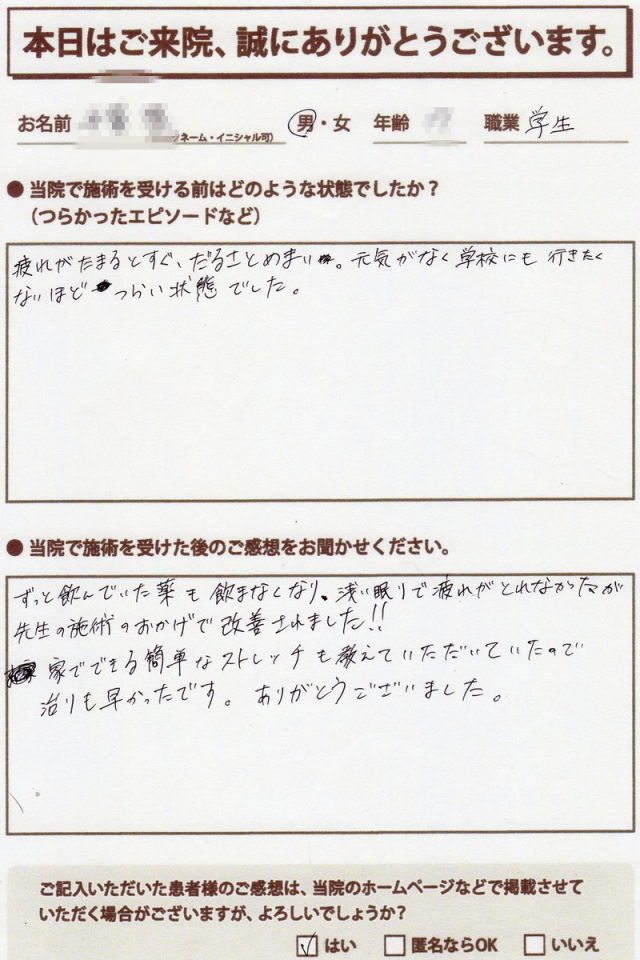 本日はご来院、誠にありがとうございます。
お名前 ネーム・イニシャル可) 男・女 年齢 職業 学生
● 当院で施術を受ける前はどのような状態でしたか？
（つらかったエピソードなど）
疲れがたまるとすぐ、だるさとめまい。元気がなく学校にも行きたく
ないほどつらい状態でした。
● 当院で施術を受けた後のご感想をお聞かせください。
ずっと飲んでいた薬も飲まなくなり、浅い眠りで疲れがとれなかったが
先生の施術のおかげで改善されました!!
家でできる簡単なストレッチも教えていただいていたので
治りも早かったです。ありがとうございました。
ご記入いただいた患者様のご感想は、当院のホームページなどで掲載させて
いただく場合がございますが、よろしいでしょうか？
☑ はい □ 匿名ならOK □ いいえ